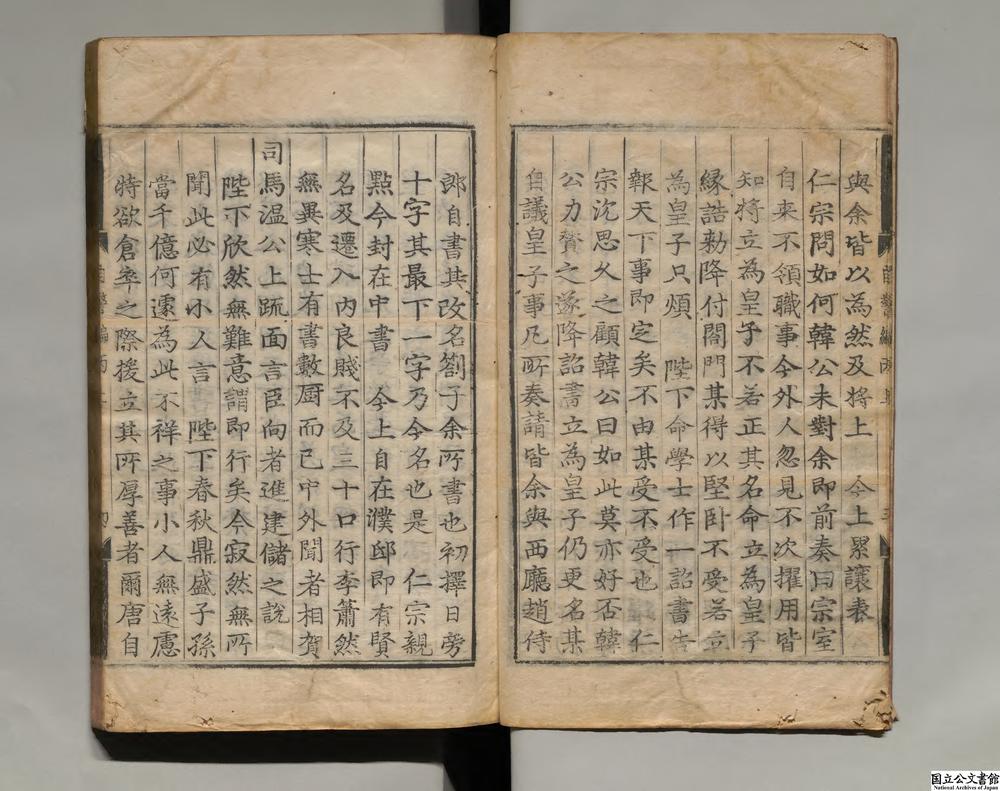 與余皆以為然及將上　今上累讓表
仁宗問如何韓公未對余即前奏曰宗室
自来不領職事今外人忽見不次擢用皆
知將立為皇子不若正其名命立為皇子
縁誥勑降付閤門某得以堅卧不受若立
為皇子只煩　陛下命學士作一詔書告
報天下事即定矣不由某受不受也　仁
宗沈思久之顧韓公曰如此莫亦好否韓
公力賛之遂降詔書立為皇子仍更名某
自議皇子事凡所奏請皆余與西廳趙侍
郎自書其改名劄子余所書也初擇日旁
十字其最下一字乃今名也是　仁宗親
點今封在中書　今上自在濮邸即有賢
名及遷入内良賤不及三十口行李蕭然
無異寒士有書數厨而已中外聞者相賀
司馬温公上䟽面言臣向者進建儲之說
陛下欣然無難意謂即行矣今寂然無所
聞此必有小人言　陛下春秋鼎盛子孫
當千億何遽為此不祥之事小人無逺慮
特欲倉卒之際援立其所厚善者爾唐自
国立公文書館
National Archives of Japan